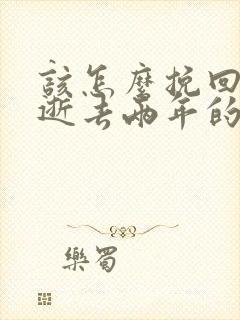 該怎麼挽回
逝去兩年的
樂蜀